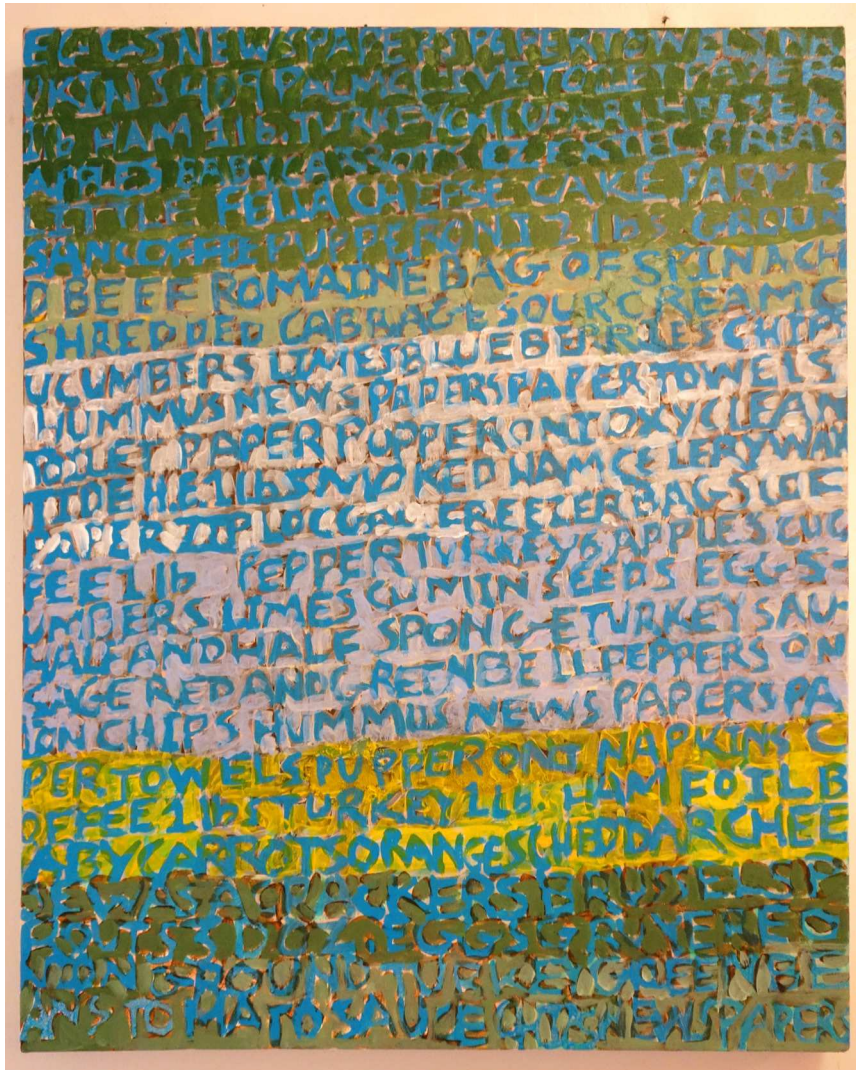 EGGSNEWSPAPERSPAPERTOWELSNA
PKINS409PALMOLIVETOILETPAPER
1lb HAM 1lb.TURKEYCHEDDAR
APPLES BABYCARROTS EZEKIELBREAD
LITTLE FELLA CHEESE CAKE PARME
SANCOFFEEPUPPERONI 2 lbs GROUN
DBEEF ROMAINE BAG OF SPINACH
SHREDDED CABBAGE SOURCREAM C
UCUMBERS LIMES BLUEBERRIES CHIPS
HUMMUS NEWSPAPERSPAPERTOWELS
PAPER PUPPERONI OXYCLEAN
1lb SMOKED HAM CELERY WAX
PAPER FREEZERBAGS COF
FEE1lb PEPPER TURKEY6APPLESCUC
UMBERS LIMES CUMINSEEDS EGGS
HALFANDHALF SPONGETURKEYSAU-
SAGEREDANDGREENBELLPEPPERS ON
ION CHIPS HUMMUS NEWSPAPERSPA
PERTOWELSPUPPERONI NAPKINS C
OFFEE1lbSTURKEY1lb. HAMFOILB
ABYCARROTSORANGESCHEDDARCHEE
CRACKERSBRUSSELSP
ROUTS3DOZEGGS
GROUNDTURKEYGREENBE
ANS TOMATOSAUCE CHIPSNEWSPAPERS